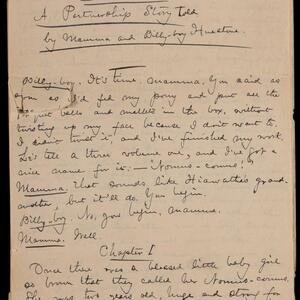 A Partnership Story told
by Mamma and Billy-boy
Billy-boy. It's time, mamma. You said as
soon as I'd fed my pony and put all the
balls and mallets in the box, without
twisting up my face because I don't want to.
I didn't twist it, and I've finished my work.
Let's tell a three volume one, and I've got a
nice name for it: — Nomis-comis.
Mamma. That sounds like Hiawatha's grand-
mother, but it'll do. You begin.
Billy-boy. No, you begin, mamma.
Mamma. Well.
Chapter I
Once there was a blessed little baby girl
so born that they called her Nomis-comis.
She was two years old, huge and strong for